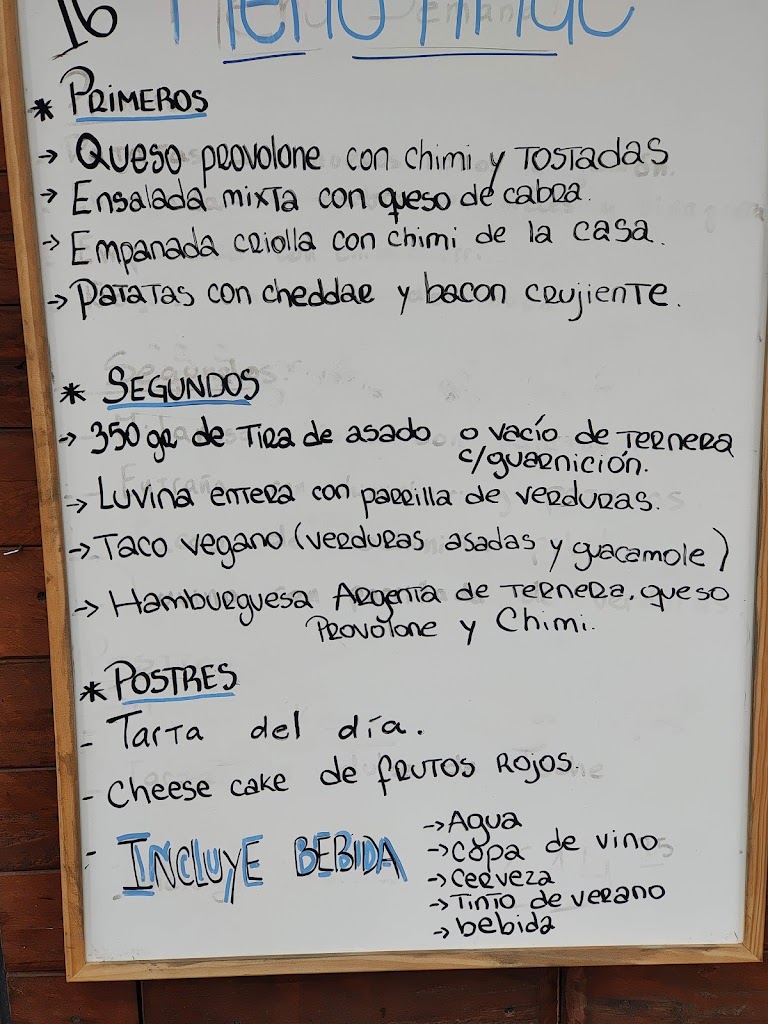 16 Menú
* PRIMEROS
→ Queso provolone con chimi y TOSTADAS
→ Ensalada mixta con queso de cabra.
→ Empanada criolla con chimi de la casa.
→ PATATAS con cheddar y bacon crujiente.
* SEGUNDOS
→ 350 gr de Tira de asado o vacío de Ternera
c/guarnición.
→ Luvina entera con parrilla de verduras.
→ Taco vegano (verduras asadas y guacamole)
→ Hamburguesa Argenta de Ternera, queso
Provolone y Chimi.
* POSTRES
- Tarta del día.
- Cheese cake de frutos rojos.
- INCLUYE BEBIDA
→ Agua
→ copa de vino
→ cerveza
→ Tinto de verano
→ bebida